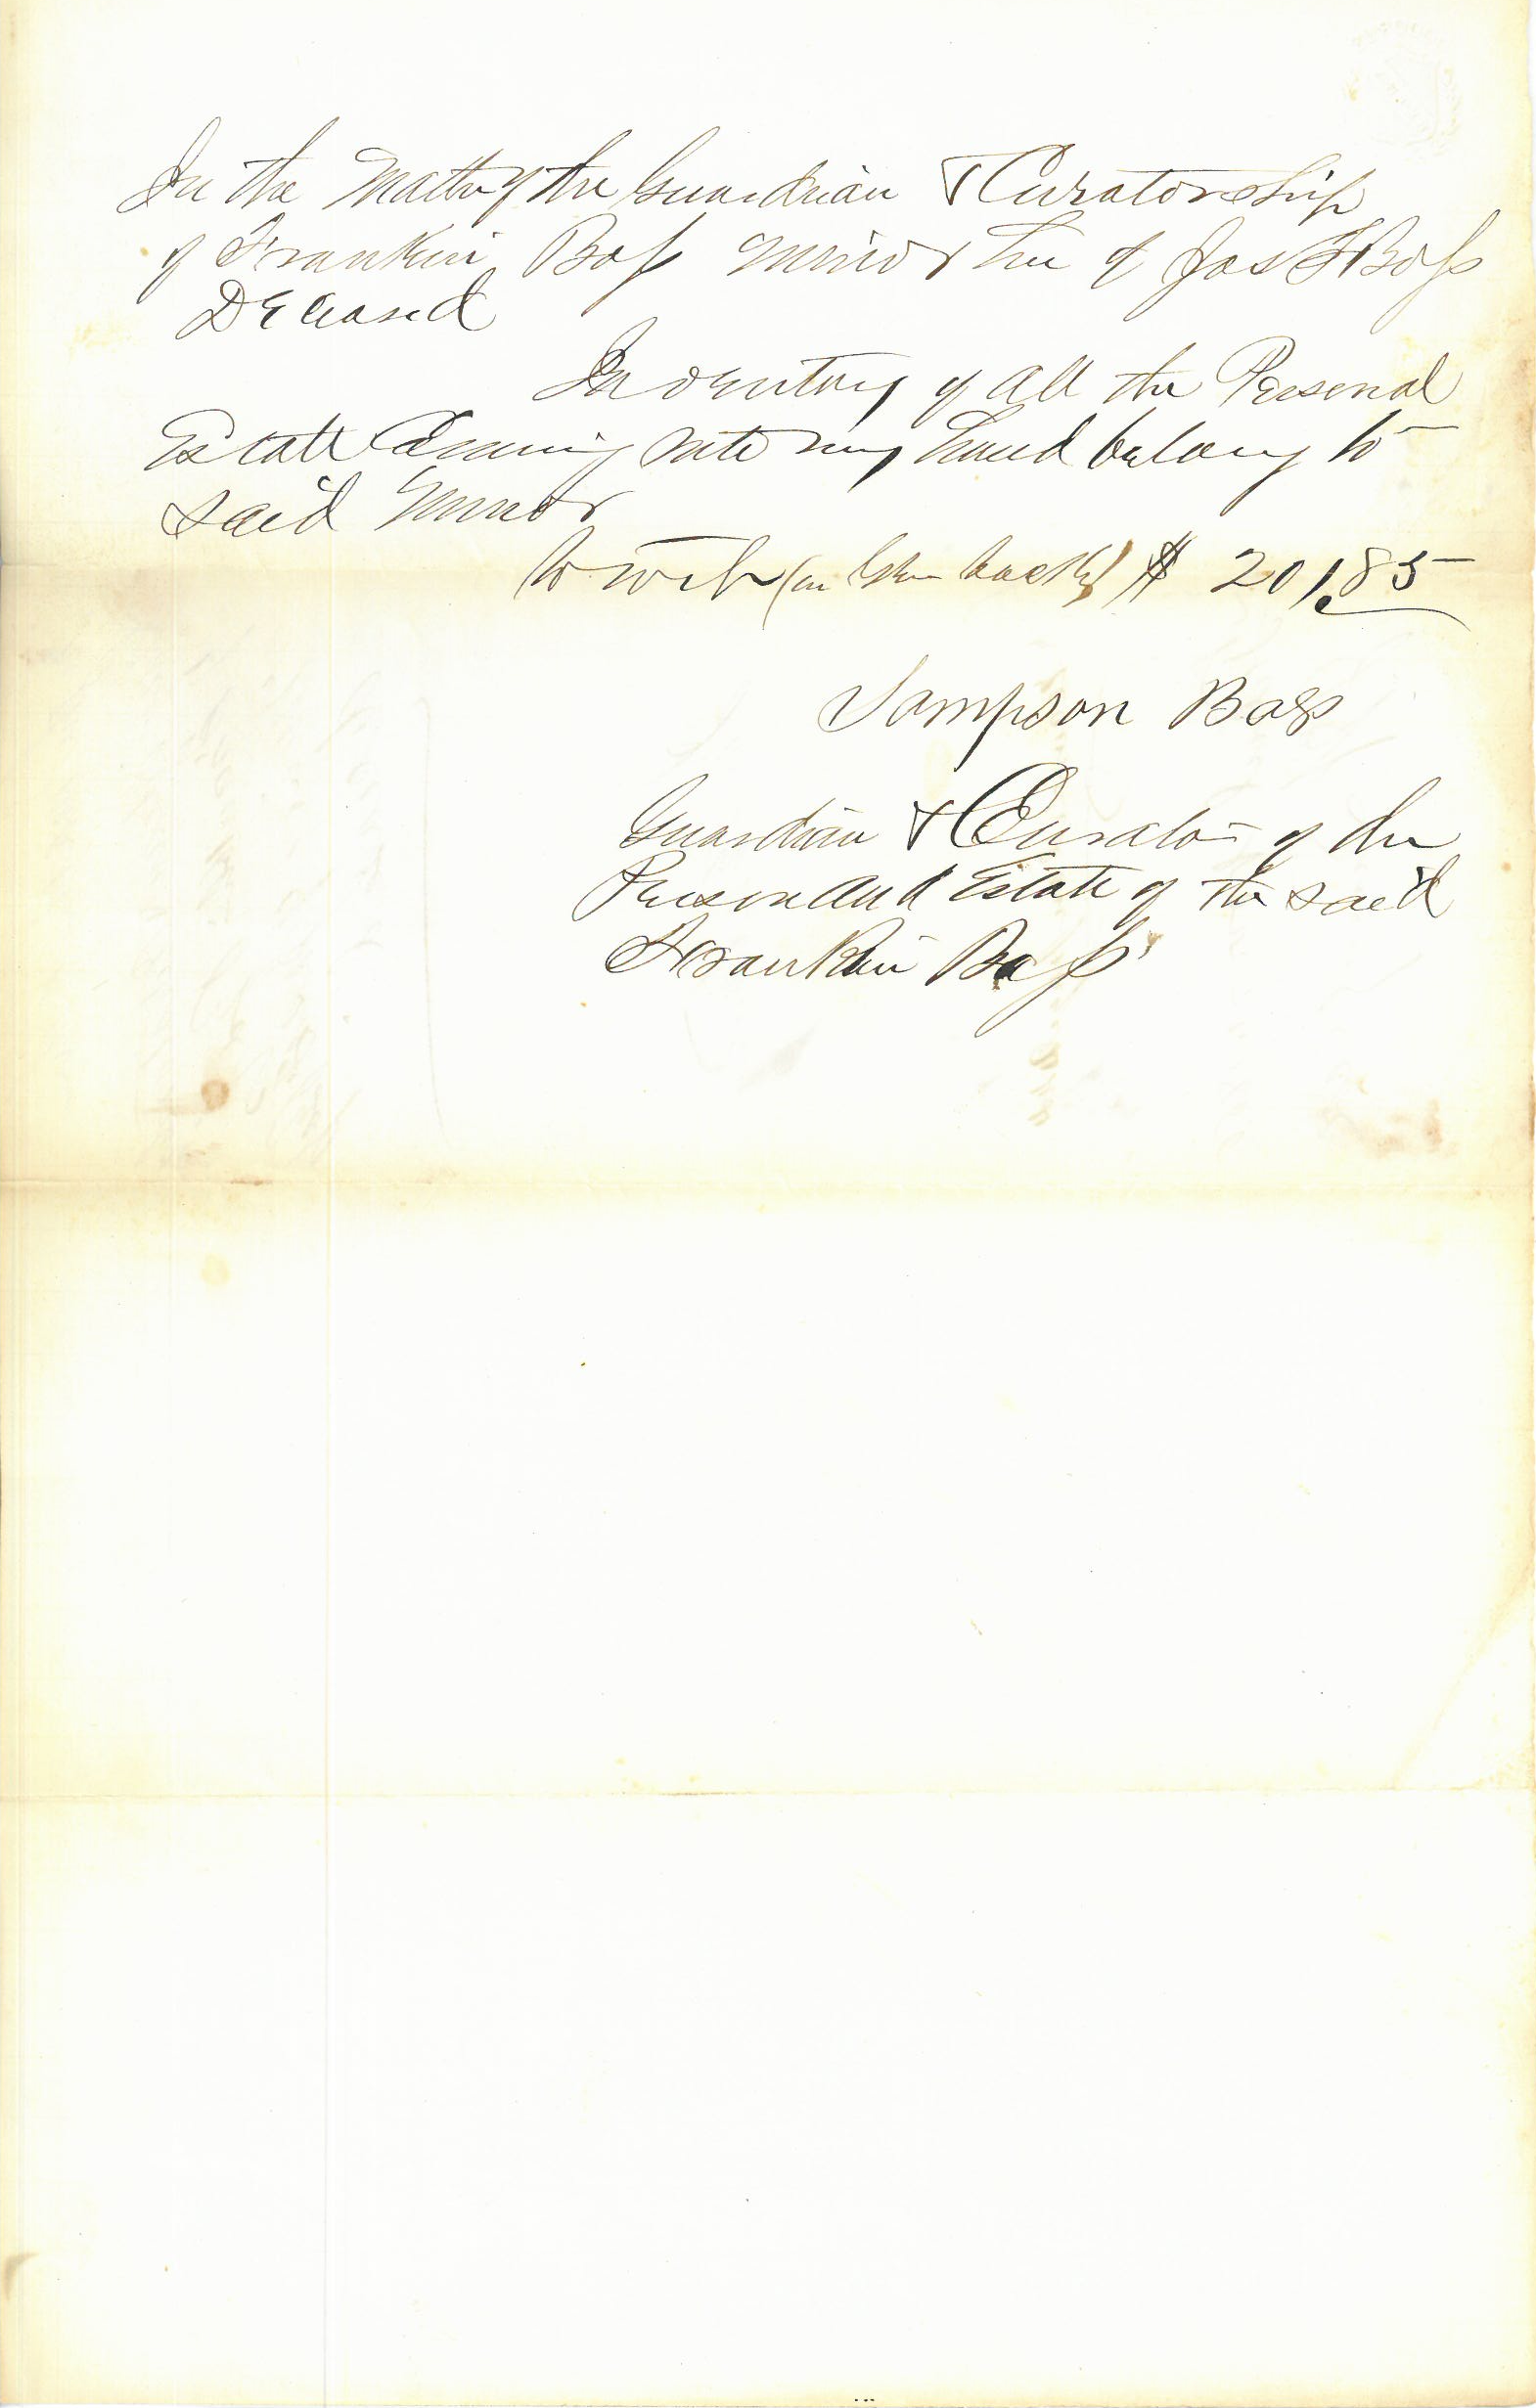 In the Matter of the Guardian & Curatorship
of Frankin Bass minor heir of Jas F Bass
Deceased
Inventory of all the Personal
Estate Coming into my hand belong to
said minor
to wit (in Green backs) $ 201.85
Sampson Bass
Guardian & Curator of the
Person and Estate of the said
Franklin Bass